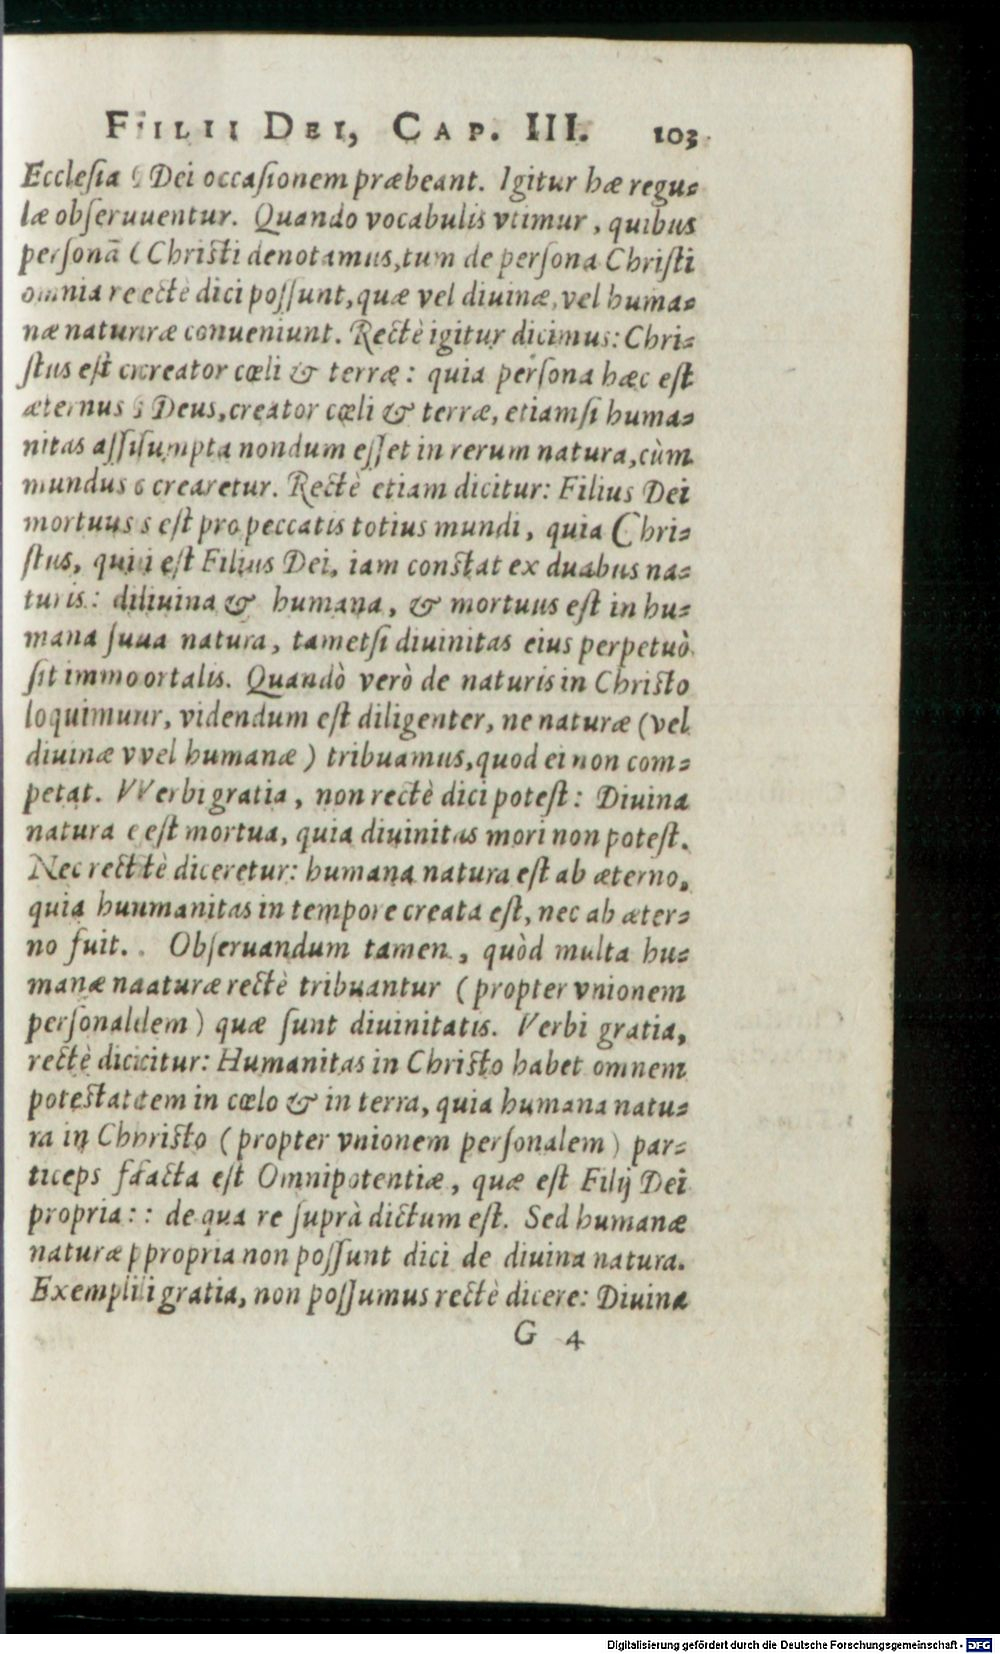 FILII DEI, CAP. III. 103
Ecclesia Dei occasionem præbeant. Igitur hæ regu-
læ obseruuentur. Quando vocabulis vtimur, quibus
personā Christi denotamus, tum de persona Christi
omnia rectè dici possunt, quæ vel diuinæ, vel huma-
næ naturæ conueniunt. Rectè igitur dicimus: Chri-
stus est creator cœli & terræ: quia persona hæc est
æternus Deus, creator cœli & terræ, etiamsi huma-
nitas assumpta nondum esset in rerum natura, cùm
mundus crearetur. Rectè etiam dicitur: Filius Dei
mortuus est pro peccatis totius mundi, quia Chri-
stus, qui est Filius Dei, iam constat ex duabus na-
turis: diuina & humana, & mortuus est in hu-
mana sua natura, tametsi diuinitas eius perpetuò
sit immortalis. Quandò verò de naturis in Christo
loquimur, videndum est diligenter, ne naturæ (vel
diuinæ vel humanæ) tribuamus, quod ei non com-
petat. Verbi gratia, non rectè dici potest: Diuina
natura est mortua, quia diuinitas mori non potest.
Nec rectè diceretur: humana natura est ab æterno,
quia humanitas in tempore creata est, nec ab æter-
no fuit. Obseruandum tamen, quòd multa hu-
manæ naturæ rectè tribuantur (propter vnionem
personalem) quæ sunt diuinitatis. Verbi gratia,
rectè dicitur: Humanitas in Christo habet omnem
potestatem in cœlo & in terra, quia humana natu-
ra in Christo (propter vnionem personalem) par-
ticeps facta est Omnipotentiæ, quæ est Filij Dei
propria: de qua re suprà dictum est. Sed humanæ
naturæ propria non possunt dici de diuina natura.
Exempli gratia, non possumus rectè dicere: Diuina
G 4
Digitalisierung gefördert durch die Deutsche Forschungsgemeinschaft - DFG